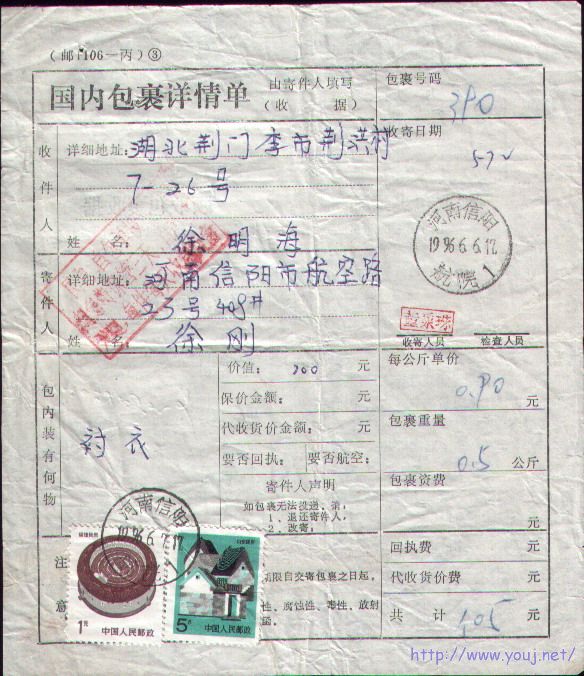 （邮1106－丙）③
国内包裹详情单
由寄件人填写
（收 据）
包裹号码
390
收寄日期
收件人
详细地址：湖北荆门李市荆洪村
7－26号
姓 名：徐明海
寄件人
详细地址：河南信阳市航空路
23号409#
姓 名：徐刚
河南信阳
1996.6.6.17
航院 1
收寄人员
检查人员
包内装有何物
衬衣
价值：300 元
保价金额： 元
代收货价金额： 元
要否回执： 要否航空：
寄件人声明
如包裹无法投递，请：
1、退还寄件人，
2、改寄：
每公斤单价
0.90 元
包裹重量
0.5 公斤
包裹资费
元
回执费 元
代收货价费 元
共 计 1.05 元
注意
限自交寄包裹之日起，
性、腐蚀性、毒性、放射
河南信阳
1996.6.17
福建民居
1元
中国人民邮政
台湾民居
5分
中国人民邮政
http://www.youj.net/